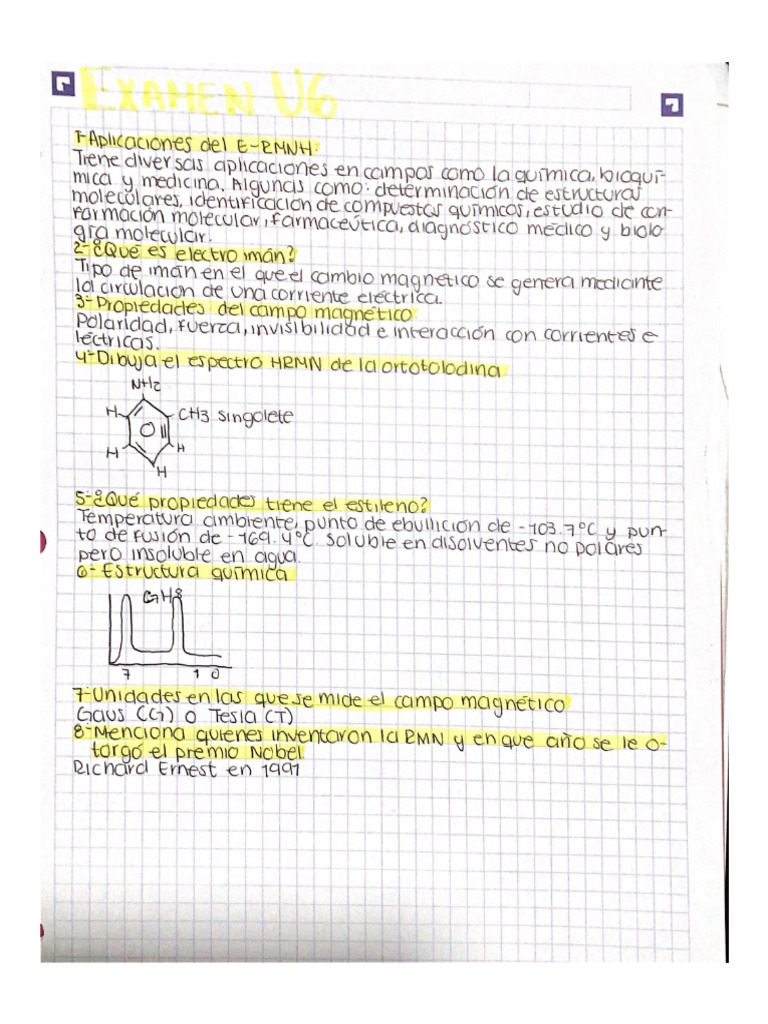 EXAMEN U6
1-Aplicaciones del E-RMNH:
Tiene diversas aplicaciones en campos como la química, bioquí-
mica y medicina. Algunas como: determinación de estructuras
moleculares, identificación de compuestos químicos, estudio de con-
formación molecular, farmacéutica, diagnóstico médico y biolo
gía molecular.
2-¿Qué es electro imán?
Tipo de imán en el que el cambio magnético se genera mediante
la circulación de una corriente eléctrica.
3-Propiedades del campo magnético
Polaridad, fuerza, invisibilidad e interacción con corrientes e
léctricas.
4-Dibuja el espectro HRMN de la ortotolodina
NH2
H
CH3 singolete
H
H
H
5-¿Qué propiedades tiene el estileno?
Temperatura ambiente, punto de ebullición de -103.7°C y pun-
to de fusión de -169.4°C soluble en disolventes no polares
pero insoluble en agua.
6- Estructura química
C7H8
7 1 0
7-Unidades en las que se mide el campo magnético
Gaus (G) o Tesla (T)
8-Menciona quienes inventaron la RMN y en que año se le o-
torgó el premio Nobel
Richard Ernest en 1991